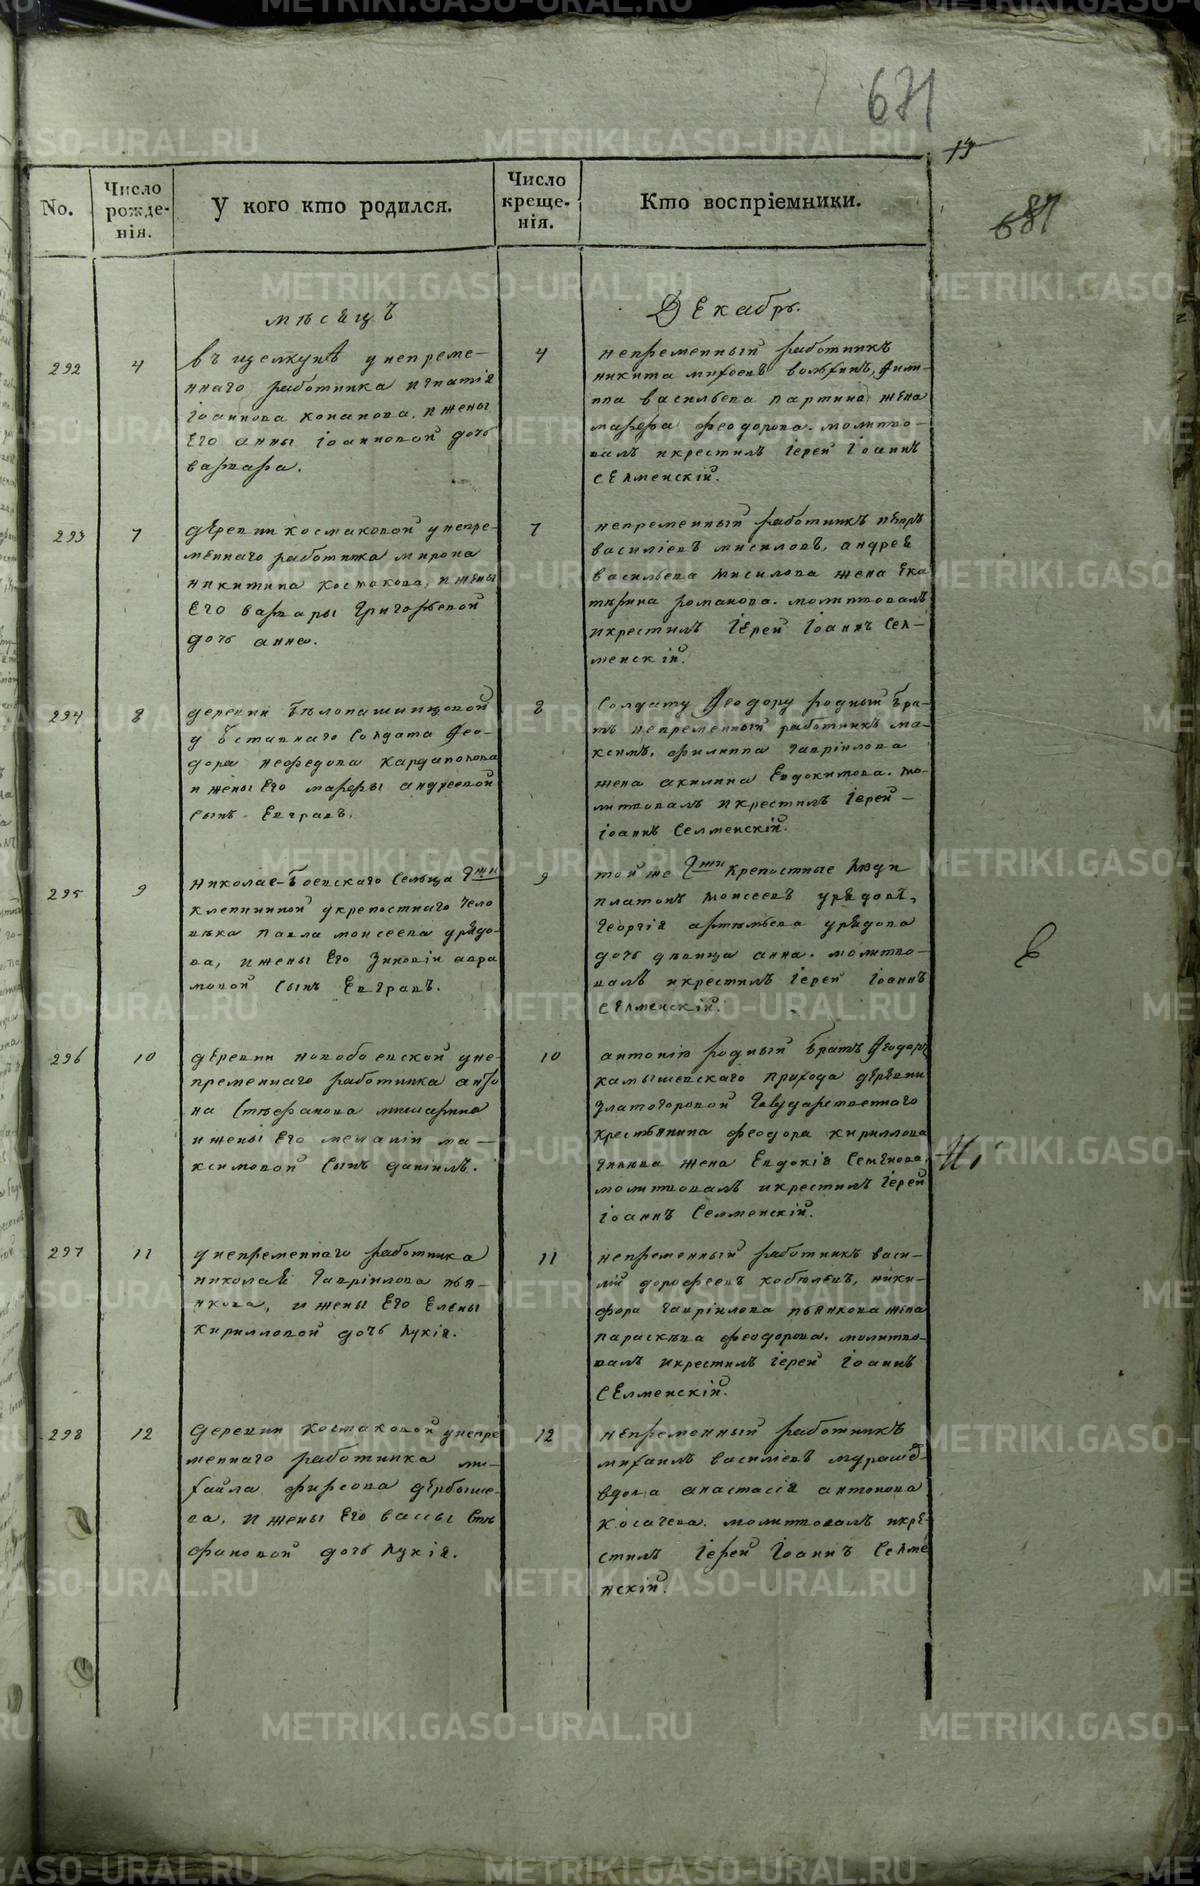 671
13
687
No.
Число рожденія.
У кого кто родился.
Число крещенія.
Кто воспріемники.
мѣсяцъ
Декабрь.
292
4
въ щелкунѣ у непреме-
ннаго работника игнатія
іоаннова конапова, и жены
его анны іоанновой дочь
варвара.
4
непременный работникъ
никита михеевъ волхинъ, фили-
ппа васильева партина жена
марфа феодорова. молитво-
валъ и крестилъ іерей іоаннъ
селменскій.
293
7
деревни космаковой у непре-
меннаго работника мирона
никитина костокова, и жены
его варвары григорьевой
дочь анна.
7
непременный работникъ петръ
василіевъ мисиловъ, андрея
васильева мисилова жена ека
терина романова. молитвовалъ
и крестилъ іерей іоаннъ сел-
менскій.
294
8
деревни бѣлопашинцовой
у отставнаго солдата фео-
дора нефедова кардаполова
и жены его марфы андреевой
сынъ евграфъ.
8
солдату феодору родный бра-
тъ непременный работникъ ма-
ксимъ, филиппа гавріилова
жена акилина евдокимова. мо-
литвовалъ и крестилъ іерей
іоаннъ селменскій.
295
9
николае-боевскаго сельца гжи
клепининой у крепостнаго чело
века павла моисеева урядо-
ва, и жены его зиновіи авра
мовой сынъ евграфъ.
9
той же гжи крепостные люди
платонъ моисеевъ урядовъ,
георгія артемьева урядова
дочь девица анна. молитво-
валъ и крестилъ іерей іоаннъ
селменскій.
296
10
деревни новобоевской у не-
пременнаго работника анто
на стефанова мишарина
и жены его меланіи ма-
ксимовой сынъ даніилъ.
10
антонію родный братъ феодоръ
камышевскаго прихода деревни
златогоровой государственнаго
крестьянина феодора кириллова
жена евдокія семенова.
молитвовалъ и крестилъ іерей
іоаннъ селменскій.
297
11
у непременнаго работника
николая гавріилова пья-
нкова, и жены его елены
кирилловой дочь лукія.
11
непременный работникъ васи-
лій дорофеевъ кобелевъ, ники-
фора гавріилова пьянкова жена
параскева феодорова. молитво-
валъ и крестилъ іерей іоаннъ
селменскій.
298
12
деревни костоковой у непре
меннаго работника ми-
хаила фирсова дербыше-
ва, и жены его вассы сте
фановой дочь лукія.
12
непременный работникъ
михаилъ василіевъ мурашевъ
вдова анастасія антонова
косачева. молитвовалъ и кре-
стилъ іерей іоаннъ селме
нскій.
METRIKI.GASO-URAL.RU